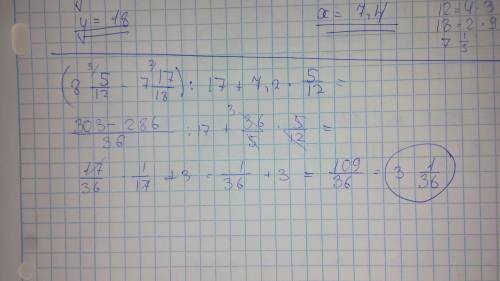 y = 18
x = 7,4
12 = 4 · 3
18 = 2 · 9
7 1/5
(8 5/12 - 7 17/18) : 17 + 7,2 · 5/12 =
303 - 286/36 : 17 + 36/5 · 5/12 =
17/36 · 1/17 + 3 = 1/36 + 3 = 109/36 = 3 1/36